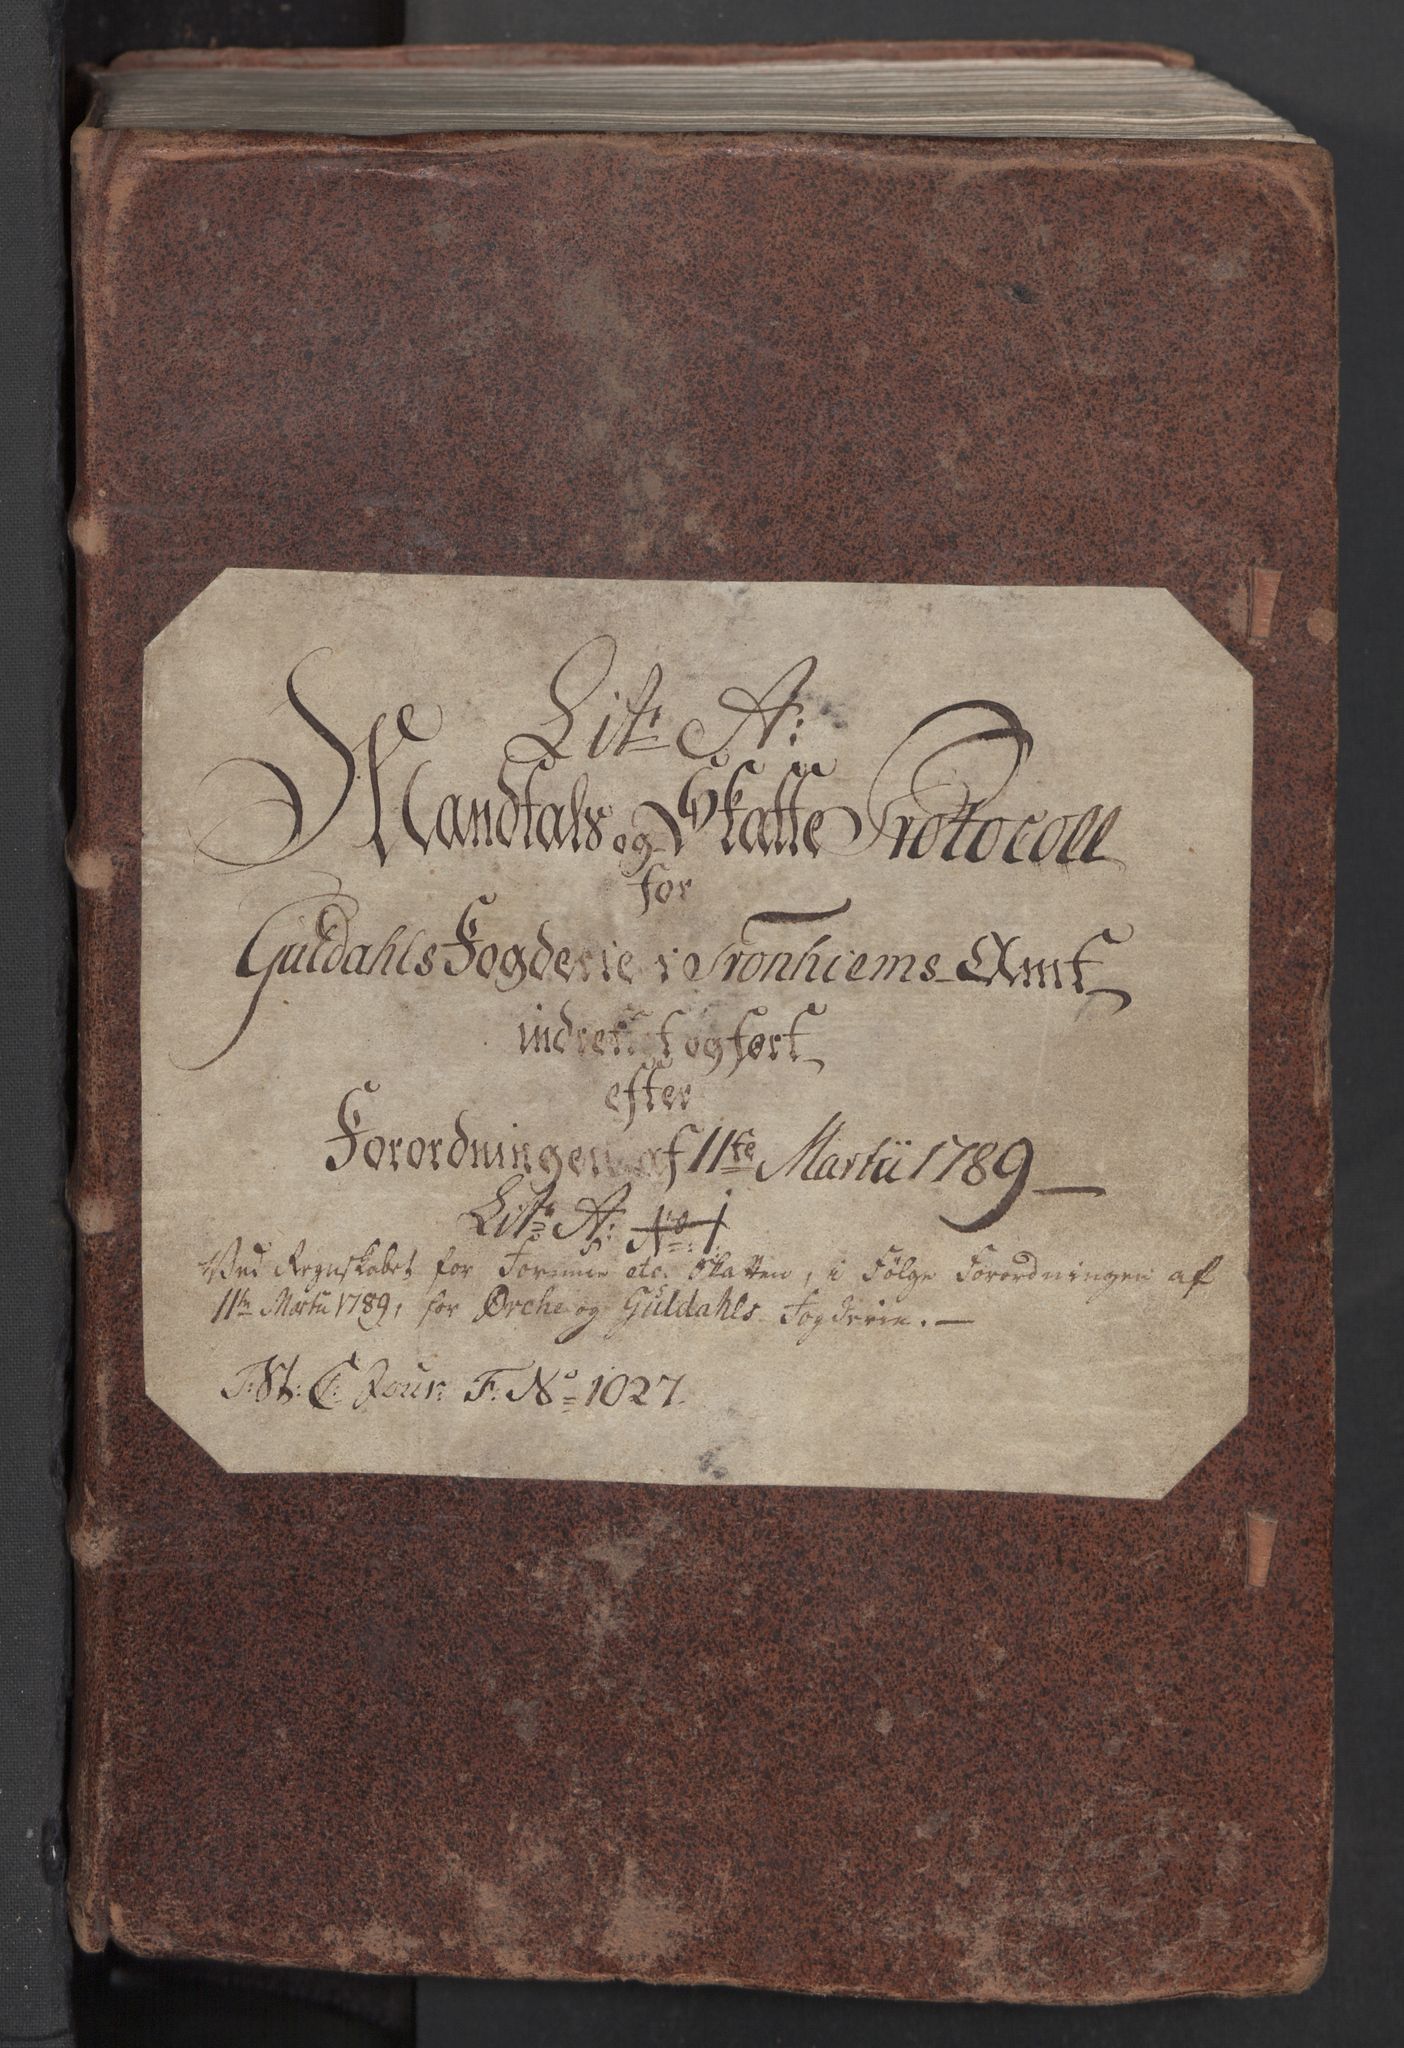 Lit: A:
Mandtals og Skatte Protocoll
for
Guldahls Fogderie i Tronhiems Amt
indrettet og ført
efter
Forordningen af 11te Martii 1789
Lit: A: No: 1.
Ved Regnskabet for Formue etc. Skatten, i Følge Forordningen af
11te Martii 1789, for Ørche og Guldahls Fogderie.
T: St: C: Jour: F: No 1027.